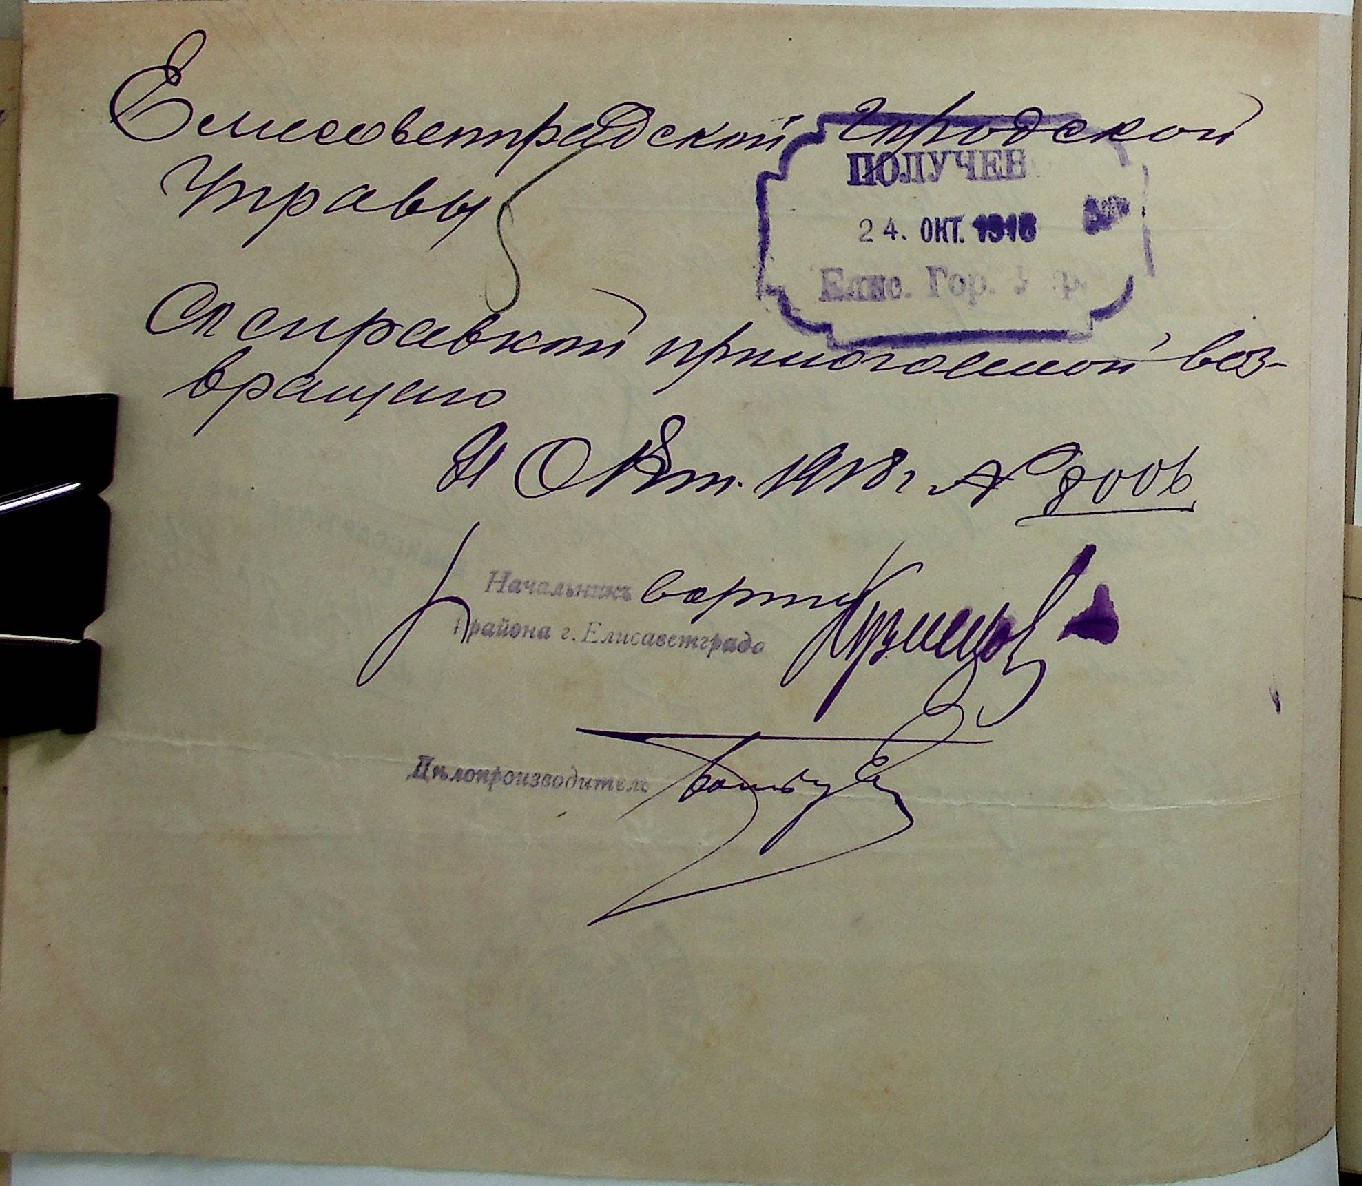 Елисоветградской Городской
Управы
ПОЛУЧЕН
24. ОКТ. 1918
Елис. Гор.
справкой прилогаемой воз-
вращаю
21 Окт. 1918 г. №
Начальникъ варты
района г. Елисаветграда
Дѣлопроизводитель